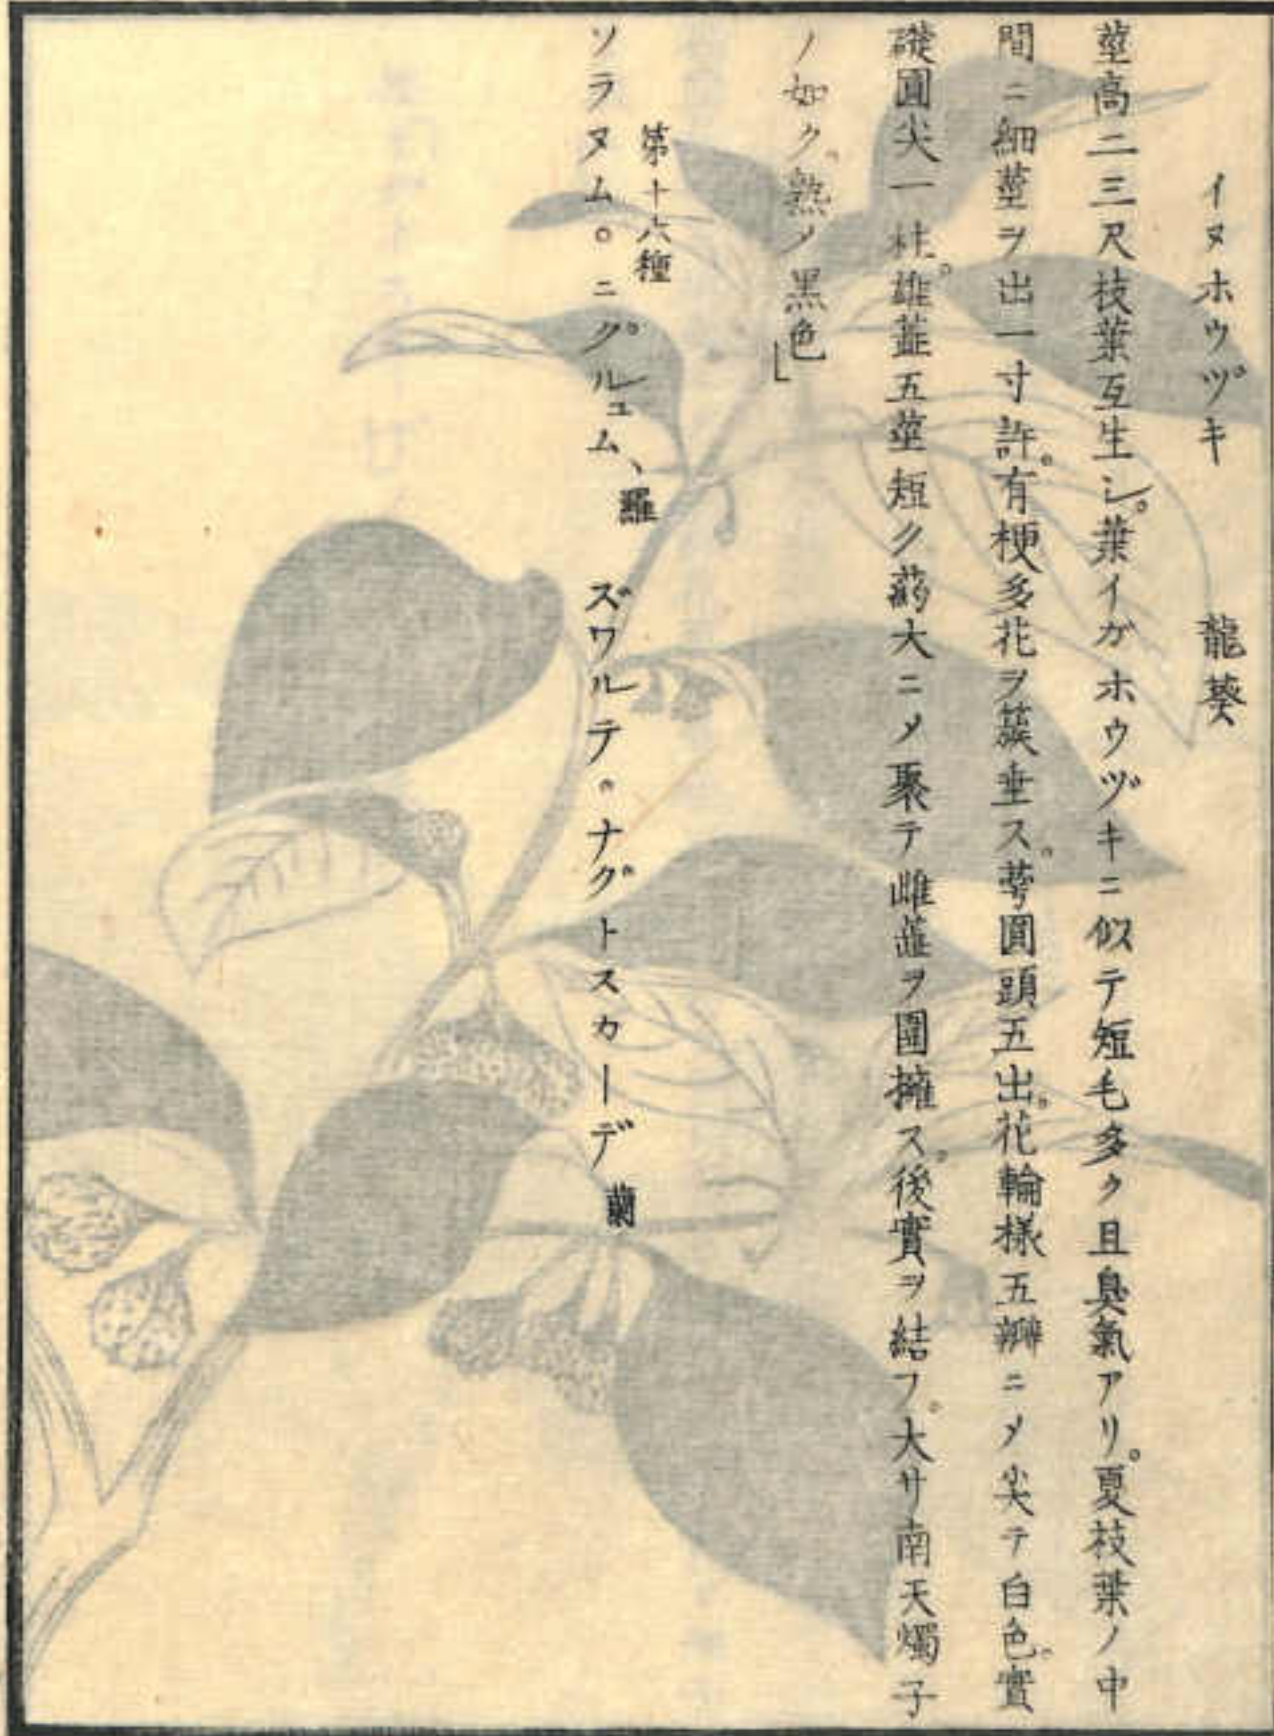 イヌホウヅキ 龍葵
莖高二三尺枝葉互生シ。葉イガホウヅキニ似テ短毛多ク且臭氣アリ。夏枝葉ノ中
間ニ細莖ヲ出一寸許。有梗多花ヲ簇垂ス。萼圓頭五出。花輪樣五瓣ニメ尖テ白色。實
礎圓尖一柱。雄蕋五莖短ク葯大ニメ聚テ雌蕋ヲ圍擁ス。後實ヲ結フ。大サ南天燭子
ノ如ク。熟メ黒色」
第十六種
ソラヌム。ニグルュム、羅 ズワルテ。ナグトスカーデ 蘭